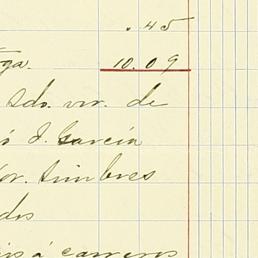 .45
ga. 10.09
Sdo. vir. de
ó J. García
or. timbres
dos
is á carreros